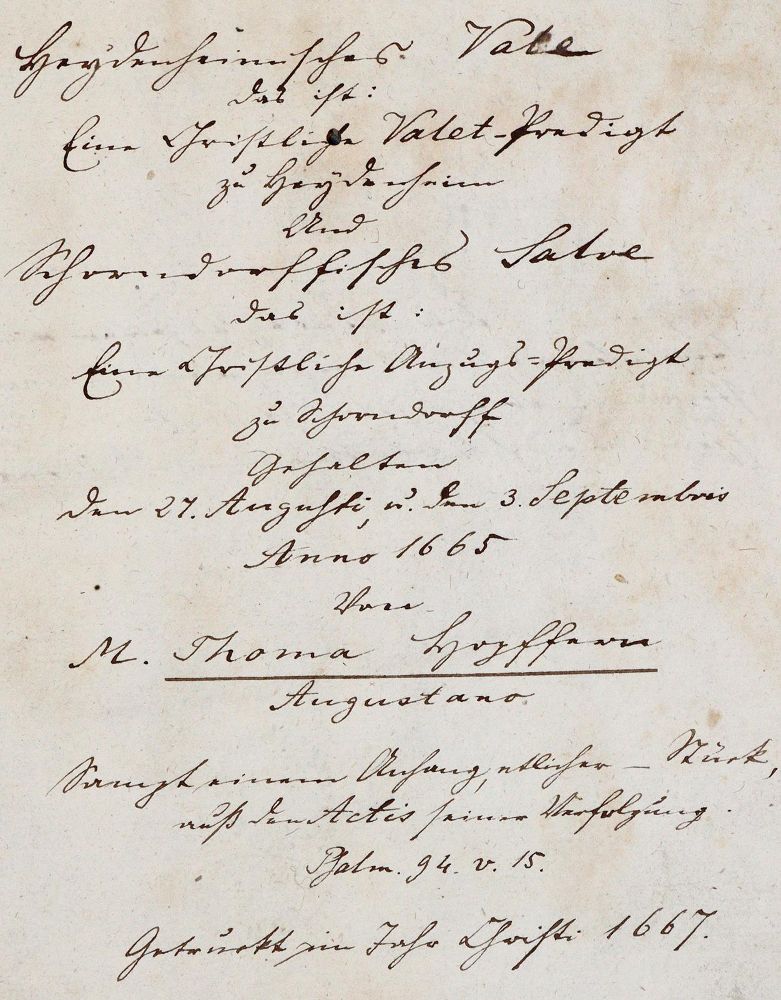 Heydenheimisches Vale
das ist:
Eine Christliche Valet-Predigt
zu Heydenheim
Und
Schorndorffisches Salve
das ist:
Eine Christliche Anzugs=Predigt
zu Schorndorff
Gehalten
den 27. Augusti, u. den 3. Septembris
Anno 1665
Von
M. Thoma Hopffern
Augustano
Sampt einem Anhang, etlicher - Stück,
auß den Actis seiner Verfolgung.
Psalm. 94. v. 15.
Getruckt im Jahr Christi 1667.